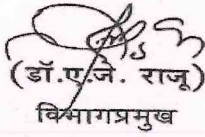 (डॉ.ए.जे. राजू)
विभागप्रमुख